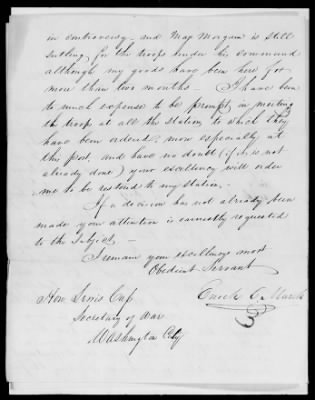 in controversy — and Maj Morgan is still
sutling for the troops under his command
although my goods have been here for
more than two months. I have been
to much expense to be prompt, in meeting
the troop at all the Stations to which they
have been ordered, more especially at
this post, and have no doubt (if it is not
already done) your excellency will order
me to be restored to my Station. —
If a decision has not already been
made your attention is earnestly requested
to the subject. —
I remain your excellencys most
Obedient Servant
Enoch C. March
Hon. Lewis Cass,
Secretary of War
Washington City